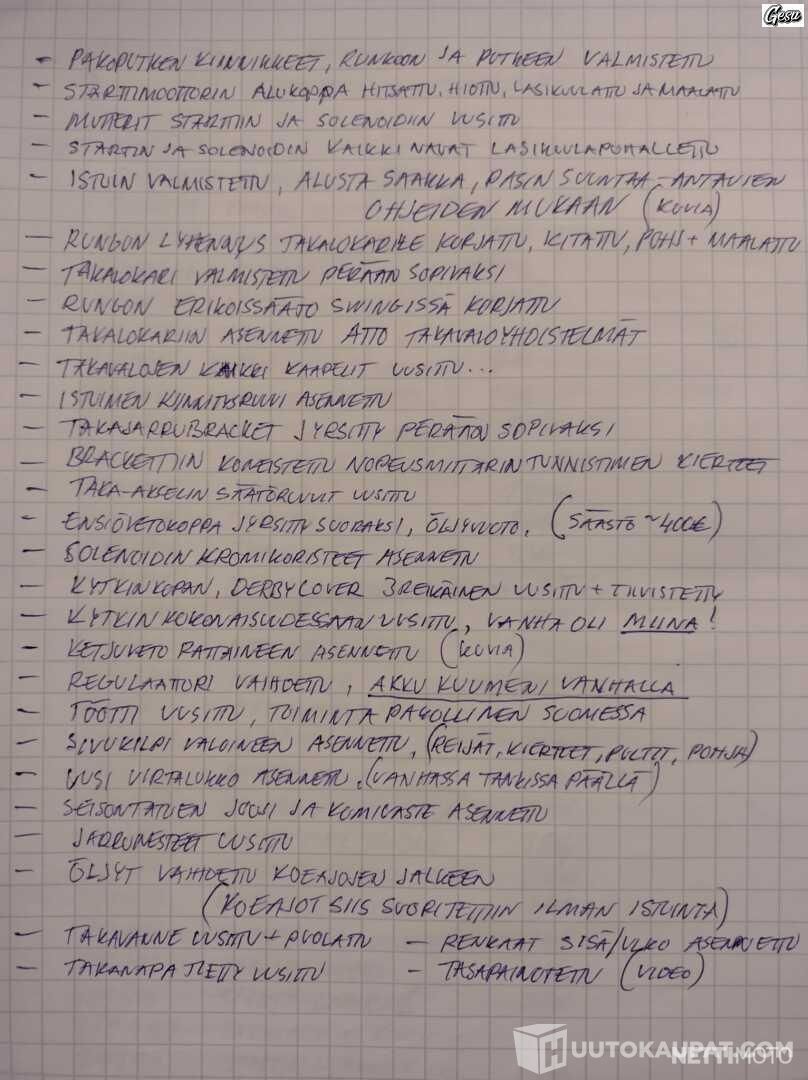 Gesu
- PAKOPUTKEN KIINNIKKEET, RUNKOON JA PUTKEEN VALMISTETTU
- STARTTIMOOTTORIN ALUKOPPA HITSATTU, HIOTTU, LASIKUULATTU JA MAALATTU
- MUTTERIT STARTTIIN JA SOLENOIDIIN UUSITTU
- STARTIN JA SOLENOIDIN KAIKKI NAVAT LASIKUULAPUHALLETTU
- ISTUIN VALMISTETTU, ALUSTA SAAKKA, PASIN SUUNTAA-ANTAVIEN
OHJEIDEN MUKAAN (KUVIA)
- RUNGON LYHENNYS TAKALOKARILLE KORJATTU, KITATTU, POHJ + MAALATTU
- TAKALOKARI VALMISTETTU PERÄÄN SOPIVAKSI
- RUNGON ERIKOISSÄÄTÖ SWINGISSÄ KORJATTU
- TAKALOKARIIN ASENNETTU ATTO TAKAVALOYHDISTELMÄT
- TAKAVALOJEN KAIKKI KAAPELIT UUSITTU...
- ISTUIMEN KIINNITYSRUUVI ASENNETTU
- TAKAJARRUBRACKET JYRSITTY PERÄÄN SOPIVAKSI
- BRACKETTIIN KONEISTETTU NOPEUSMITTARIN TUNNISTIMEN KIERTEET
- TAKA-AKSELIN SÄÄTÖRUUVIT UUSITTU
- ENSIÖVETOKOPPA JYRSITTY SUORAKSI, ÖLJYVUOTO, (SÄÄSTÖ ~400€)
- SOLENOIDIN KROMIKORISTEET ASENNETTU
- KYTKINKOPAN, DERBYCOVER 3REIKÄINEN UUSITTU + TIIVISTETTY
- KYTKIN KOKONAISUUDESSAAN UUSITTU, VANHA OLI MUNA!
- KETJUVETO RATTAINEEN ASENNETTU (KUVIA)
- REGULAATTORI VAIHDETTU, AKKU KUUMENI VANHALLA
- TÖÖTTI UUSITTU, TOIMINTA PAKOLLINEN SUOMESSA
- SIVUKILPI VALOINEEN ASENNETTU, (REIJÄT, KIERTEET, PULTIT, POHJA)
- UUSI VIRTALUKKO ASENNETTU, (VANHASSA TANKISSA PÄÄLLÄ)
- SEISONTATUEN JOUSI JA KUMIVASTE ASENNETTU
- JARRUNESTEET UUSITTU
- ÖLJYT VAIHDETTU KOEAJOJEN JÄLKEEN
(KOEAJOT SIIS SUORITETTIIN ILMAN ISTUINTA)
- TAKAVANNE UUSITTU + PUOLATTU - RENKAAT SISÄ/ULKO ASENNETTU
- TAKANAPA TIETTY UUSITTU - TASAPAINOTETTU (VIDEO)
HUUTOKAUPAT.COM
NETTIMOTO